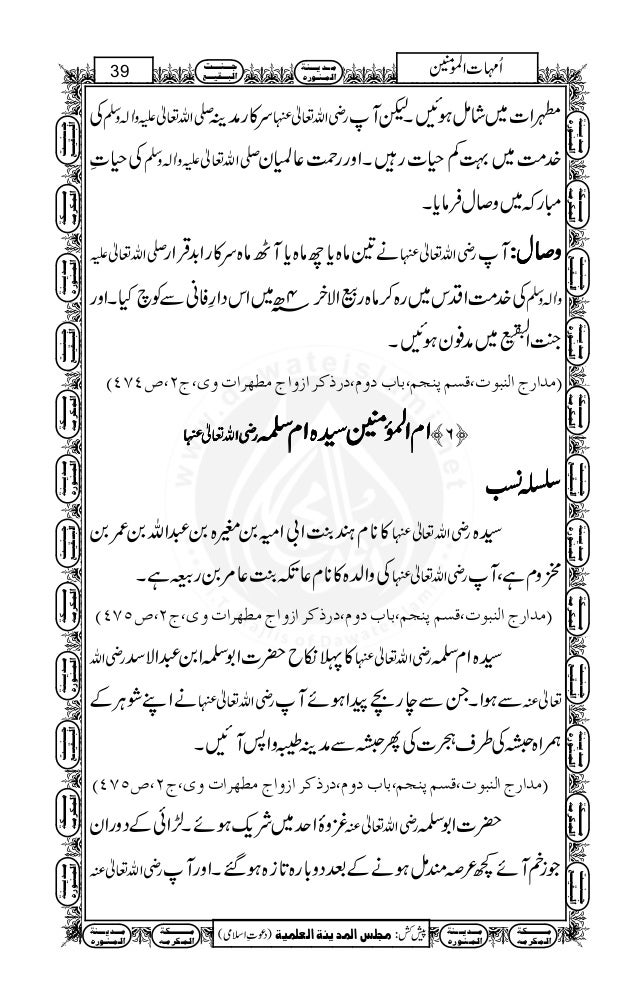 اُمہات المؤمنین
39
مطہرات میں شامل ہوئیں۔ لیکن آپ رضی اللہ تعالیٰ عنہا سرکار مدینہ صلی اللہ تعالیٰ علیہ والہ وسلم کی
خدمت میں بہت کم حیات رہیں۔ اور رحمت عالمیان صلی اللہ تعالیٰ علیہ والہ وسلم کی حیاتِ
مبارکہ میں وصال فرمایا۔
وصال: آپ رضی اللہ تعالیٰ عنہا نے تین ماہ یا چھ ماہ یا آٹھ ماہ سرکار ابد قرار صلی اللہ تعالیٰ علیہ
والہ وسلم کی خدمت اقدس میں رہ کر ماہ ربیع الاخر ۴ھ میں اس دارِ فانی سے کوچ کیا۔ اور
جنت البقیع میں مدفون ہوئیں۔
(مدارج النبوت، قسم پنجم، باب دوم، درذکر ازواج مطہرات وی، ج۲، ص۴۷۴)
﴿۶﴾ ام المؤمنین سیدہ ام سلمہ رضی اللہ تعالیٰ عنہا
سلسلہ نسب
سیدہ رضی اللہ تعالیٰ عنہا کا نام ہند بنت ابی امیہ بن مغیرہ بن عبداللہ بن عمر بن
مخزوم ہے، آپ رضی اللہ تعالیٰ عنہا کی والدہ کا نام عاتکہ بنت عامر بن ربیعہ ہے۔
(مدارج النبوت، قسم پنجم، باب دوم، درذکر ازواج مطہرات وی، ج۲، ص۴۷۵)
سیدہ ام سلمہ رضی اللہ تعالیٰ عنہا کا پہلا نکاح حضرت ابوسلمہ ابن عبدالاسد رضی اللہ
تعالیٰ عنہ سے ہوا۔ جن سے چار بچے پیدا ہوئے آپ رضی اللہ تعالیٰ عنہا نے اپنے شوہر کے
ہمراہ حبشہ کی طرف ہجرت کی پھر حبشہ سے مدینہ طیبہ واپس آئیں۔
(مدارج النبوت، قسم پنجم، باب دوم، درذکر ازواج مطہرات وی، ج۲، ص۴۷۵)
حضرت ابوسلمہ رضی اللہ تعالیٰ عنہ غزوۂ احد میں شریک ہوئے۔ لڑائی کے دوران
جو زخم آئے کچھ عرصہ مندمل ہونے کے بعد دوبارہ تازہ ہو گئے۔ اور آپ رضی اللہ تعالیٰ عنہ
پیش کش: مجلس المدینۃ العلمیۃ (دعوتِ اسلامی)